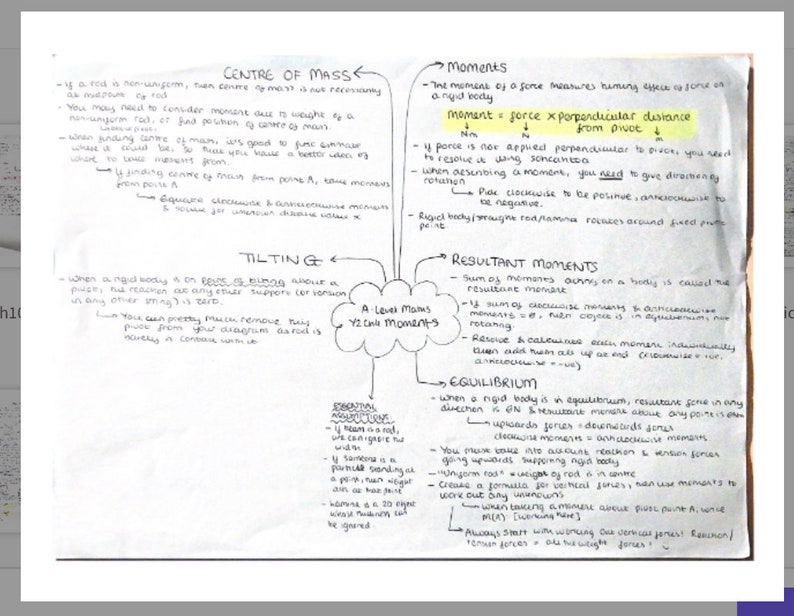 CENTRE OF MASS
- If a rod is non-uniform, then centre of mass is not necessarily
at midpoint of rod
- You may need to consider moment due to weight of a
non-uniform rod, or find position of centre of mass.
- When finding centre of mass, it's good to first estimate
where it could be, so that you have a better idea of
where to take moments from
If finding centre of mass from point A, take moments
from point A
Equate clockwise & anticlockwise moments
& solve for unknown distance value x
TILTING
- When a rigid body is on point of tilting about a
pivot, the reaction at any other support (or tension
in any other string) is zero.
You can pretty much remove this
pivot from your diagram as rod is
barely in contact with it
A-Level Maths
Y2 Ch4 Moments
ESSENTIAL
ASSUMPTIONS
- If beam is a rod,
we can ignore the
width
- If someone is a
particle standing at
a point, then weight
acts at that point
- Lamina is a 2D object
whose thickness can
be ignored
Moments
- The moment of a force measures turning effect of force on
a rigid body
Moment = force x perpendicular distance
from pivot
Nm N m
- If force is not applied perpendicular to pivot, you need
to resolve it using sohcahtoa
- When describing a moment, you need to give direction of
rotation
Pick clockwise to be positive, anticlockwise to
be negative.
- Rigid body/straight rod/lamina rotates around fixed pivot
point
RESULTANT MOMENTS
- Sum of moments acting on a body is called the
resultant moment
- If sum of clockwise moments & anticlockwise
moments = 0, then object is in equilibrium, not
rotating.
- Resolve & calculate each moment individually
then add them all up at end (clockwise = +ve,
anticlockwise = -ve)
EQUILIBRIUM
- When a rigid body is in equilibrium, resultant force in any
direction is 0N & resultant moment about any point is 0Nm
upwards forces = downwards forces
clockwise moments = anticlockwise moments
- You must take into account reaction & tension forces
going upwards supporting rigid body
- "Uniform rod" = weight of rod is in centre
- Create a formula for vertical forces, then use moments to
work out any unknowns
When taking a moment about pivot point A, write
M(A): [working here]
Always start with working out vertical forces! Reaction/
tension forces = all the weight forces!